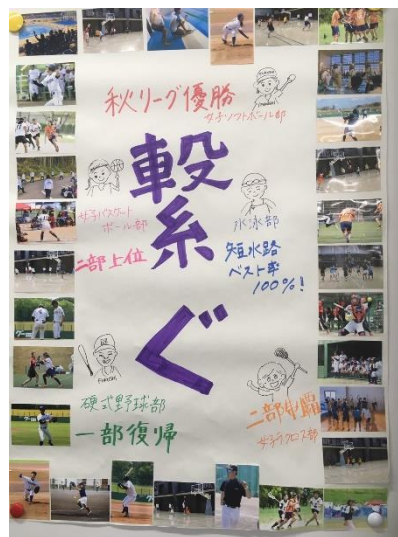 秋リーグ優勝
女子ソフトボール部
繋ぐ
女子バスケット
ボール部
二部上位
水泳部
短水路
ベスト率
100%!
硬式野球部
一部復帰
二部昇格
女子ラクロス部